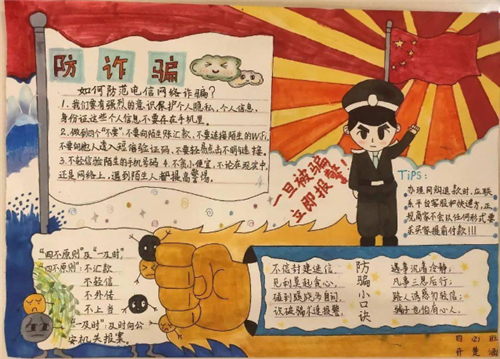 防诈骗
如何防范电信网络诈骗?
1.我们要有强烈的意识保护个人隐私,个人信息,
身份证这些个人信息不要存在手机里。
2.做到四个"不要":不要向陌生账汇款,不要连接陌生的WiFi,
不要向他人透入短信验证码,不要轻易点击不明链接。
3.不轻信你陌生的手机号码 4.不贪小便宜,不论在现实中,
还是网络上,遇到陌生人都提高警惕。
一旦被骗
立即报警!
TiPS:
办理网购退款时,应联
系平台客服护快递方,正
规商客不会以任何形式要
求买客提前付款!!!
"四不原则"及"一及时"
"四不原则":不汇款
不轻信
不外传
不上当
"一及时":及时向公
安机关报案。
防骗小口诀
不信封建迷信,
见到
识破骗术速报警
遇事沉着冷静;
凡事三思后行;
路人诱惑勿放信;
骗子也怕有心人。
四(2)班